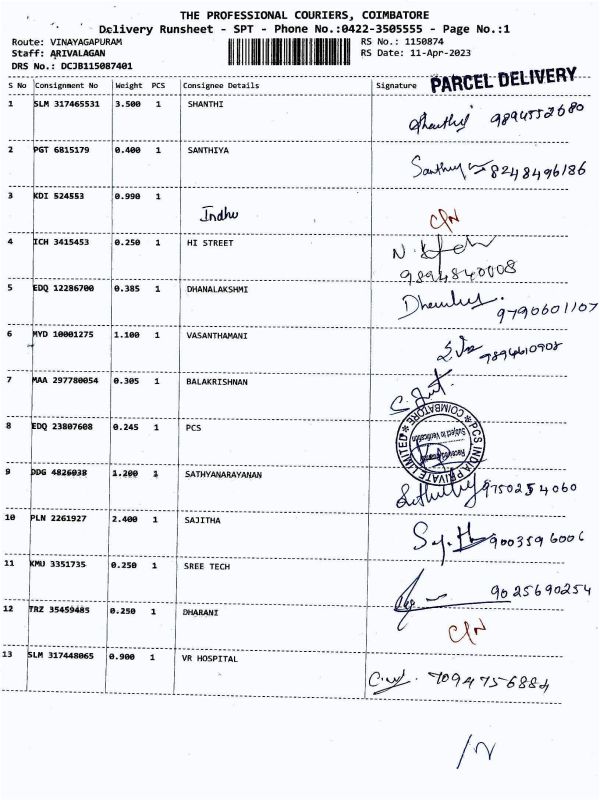 THE PROFESSIONAL COURIERS, COIMBATORE
Delivery Runsheet - SPT - Phone No.:0422-3505555 - Page No.:1
Route: VINAYAGAPURAM RS No.: 1150874
Staff: ARIVALAGAN RS Date: 11-Apr-2023
DRS No.: DCJB115087401
PARCEL DELIVERY
S No Consignment No Weight PCS Consignee Details Signature
1 SLM 317465531 3.500 1 SHANTHI
Shanthi 9894552680
2 PGT 6815179 0.400 1 SANTHIYA
Santhiya 8248496186
3 KDI 524553 0.990 1
Indhu C/N
4 ICH 3415453 0.250 1 HI STREET
9894840008
5 EDQ 12286700 0.385 1 DHANALAKSHMI
9790601107
6 MYD 10001275 1.100 1 VASANTHAMANI
9894610908
7 MAA 297780054 0.305 1 BALAKRISHNAN
8 EDQ 23807608 0.245 1 PCS
PCS INDIA PRIVATE LIMITED
COIMBATORE
Subject to Verification
9 DDG 4826038 1.200 1 SATHYANARAYANAN
9750254060
10 PLN 2261927 2.400 1 SAJITHA
9003596006
11 KMU 3351735 0.250 1 SREE TECH
9025690254
12 TRZ 35459485 0.250 1 DHARANI
C/N
13 SLM 317448065 0.900 1 VR HOSPITAL
7094756884